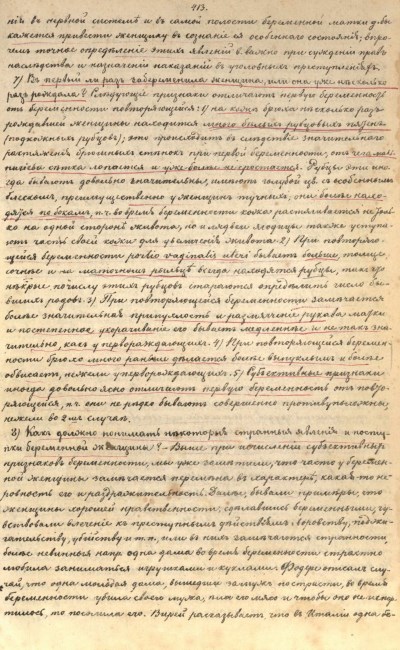 413.
нія въ нервной системѣ и въ самой полости беременной матки
кажется привести женщину въ сознаніе ея особеннаго состоянія; впро-
чемъ точное опредѣленіе этихъ явленій важно при сужденіи правъ
наслѣдства и назначеніи наказаній въ уголовныхъ преступленіяхъ.
7) Въ первый ли разъ забеременѣла женщина, или она уже нѣсколько
разъ рожала? Слѣдующіе признаки отличаютъ первую беременность
отъ беременности повторяющейся: 1) на кожѣ брюха нѣсколько разъ
рожавшей женщины находится много бѣлыхъ рубцовыхъ пятенъ
(подкожныхъ рубцовъ); это происходитъ въ слѣдствіе значительнаго
растяженія брюшныхъ стѣнокъ при первой беременности, отъ чего
сѣтка лопается и уже болѣе не сростается. Рубцы эти ино-
гда бываютъ довольно значительны, имѣютъ голубой цв. съ особеннымъ
блескомъ, преимущественно у женщинъ тучныхъ; они болѣе нахо-
дятся по бокамъ, п.ч. во время беременности кожа растягивается не толь-
ко на одной сторонѣ живота, но и лядвеи ягодицы также уступа-
ютъ часть своей кожи для увеличенія живота. 2) При повторяю-
щейся беременности portio vaginalis uteri бываетъ больше, толще,
сочнѣе и на маточномъ рыльцѣ всегда находятся рубцы, такъ что
нѣкрые по числу этихъ рубцовъ стараются опредѣлить число бы-
вшихъ родовъ. 3) При повторяющейся беременности замѣчается
болѣе значительная припухлость и размягченіе рукава матки
и постепенное укорачиваніе его бываетъ медленнѣе и не такъ зна-
чительно, какъ у перворождающихъ. 4) При повторяющейся беремен-
ности брюхо много раньше дѣлается болѣе выпуклымъ и болѣе
обвисаетъ, нежели у перворождающихъ. 5) Субъективные признаки
иногда довольно ясно отличаютъ первую беременность отъ повто-
ряющейся, п.ч. они не рѣдко бываютъ совершенно противуположны,
нежели во 2мъ случаѣ.
8) Какъ должно понимать нѣкоторыя странныя явленія и посту-
пки беременной женщины? – Выше при исчисленіи субъективныхъ
признаковъ беременности, мы уже замѣтили, что часто у беремен-
ной женщины замѣчается перемѣна въ характерѣ, какъ то не-
ровность его и раздражительность. Далѣе, бывали примѣры, что
женщины хорошей нравственности, сдѣлавшись беременными, чу-
вствовали влеченіе къ преступнымъ дѣйствіямъ: воровству, поджи-
гательству, убійству и т.п. или въ нихъ замѣчаются странности,
болѣе невинныя напр. одна дама во время беременности страстно
любила заниматься игрушками и куклами. Фодере описалъ слу-
чай, что одна молодая дама, вышедши замужъ по страсти, во время
беременности убила своего мужа, ѣла его мясо и чтобы оно не испор-
тилось, то посолила его. Вирей разсказываетъ что въ Италіи одна бе-